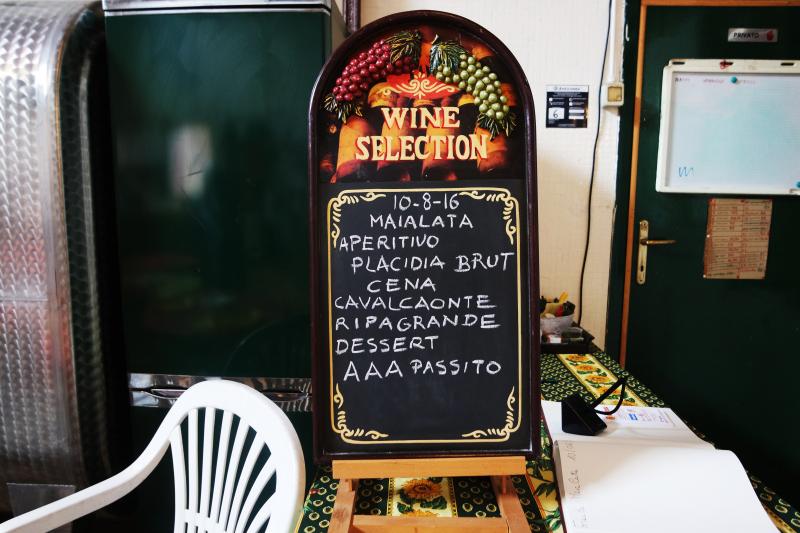 WINE
SELECTION
10-8-16
MAIALATA
APERITIVO
PLACIDIA BRUT
CENA
CAVALCAONTE
RIPAGRANDE
DESSERT
AAA PASSITO
PRIVATO
6